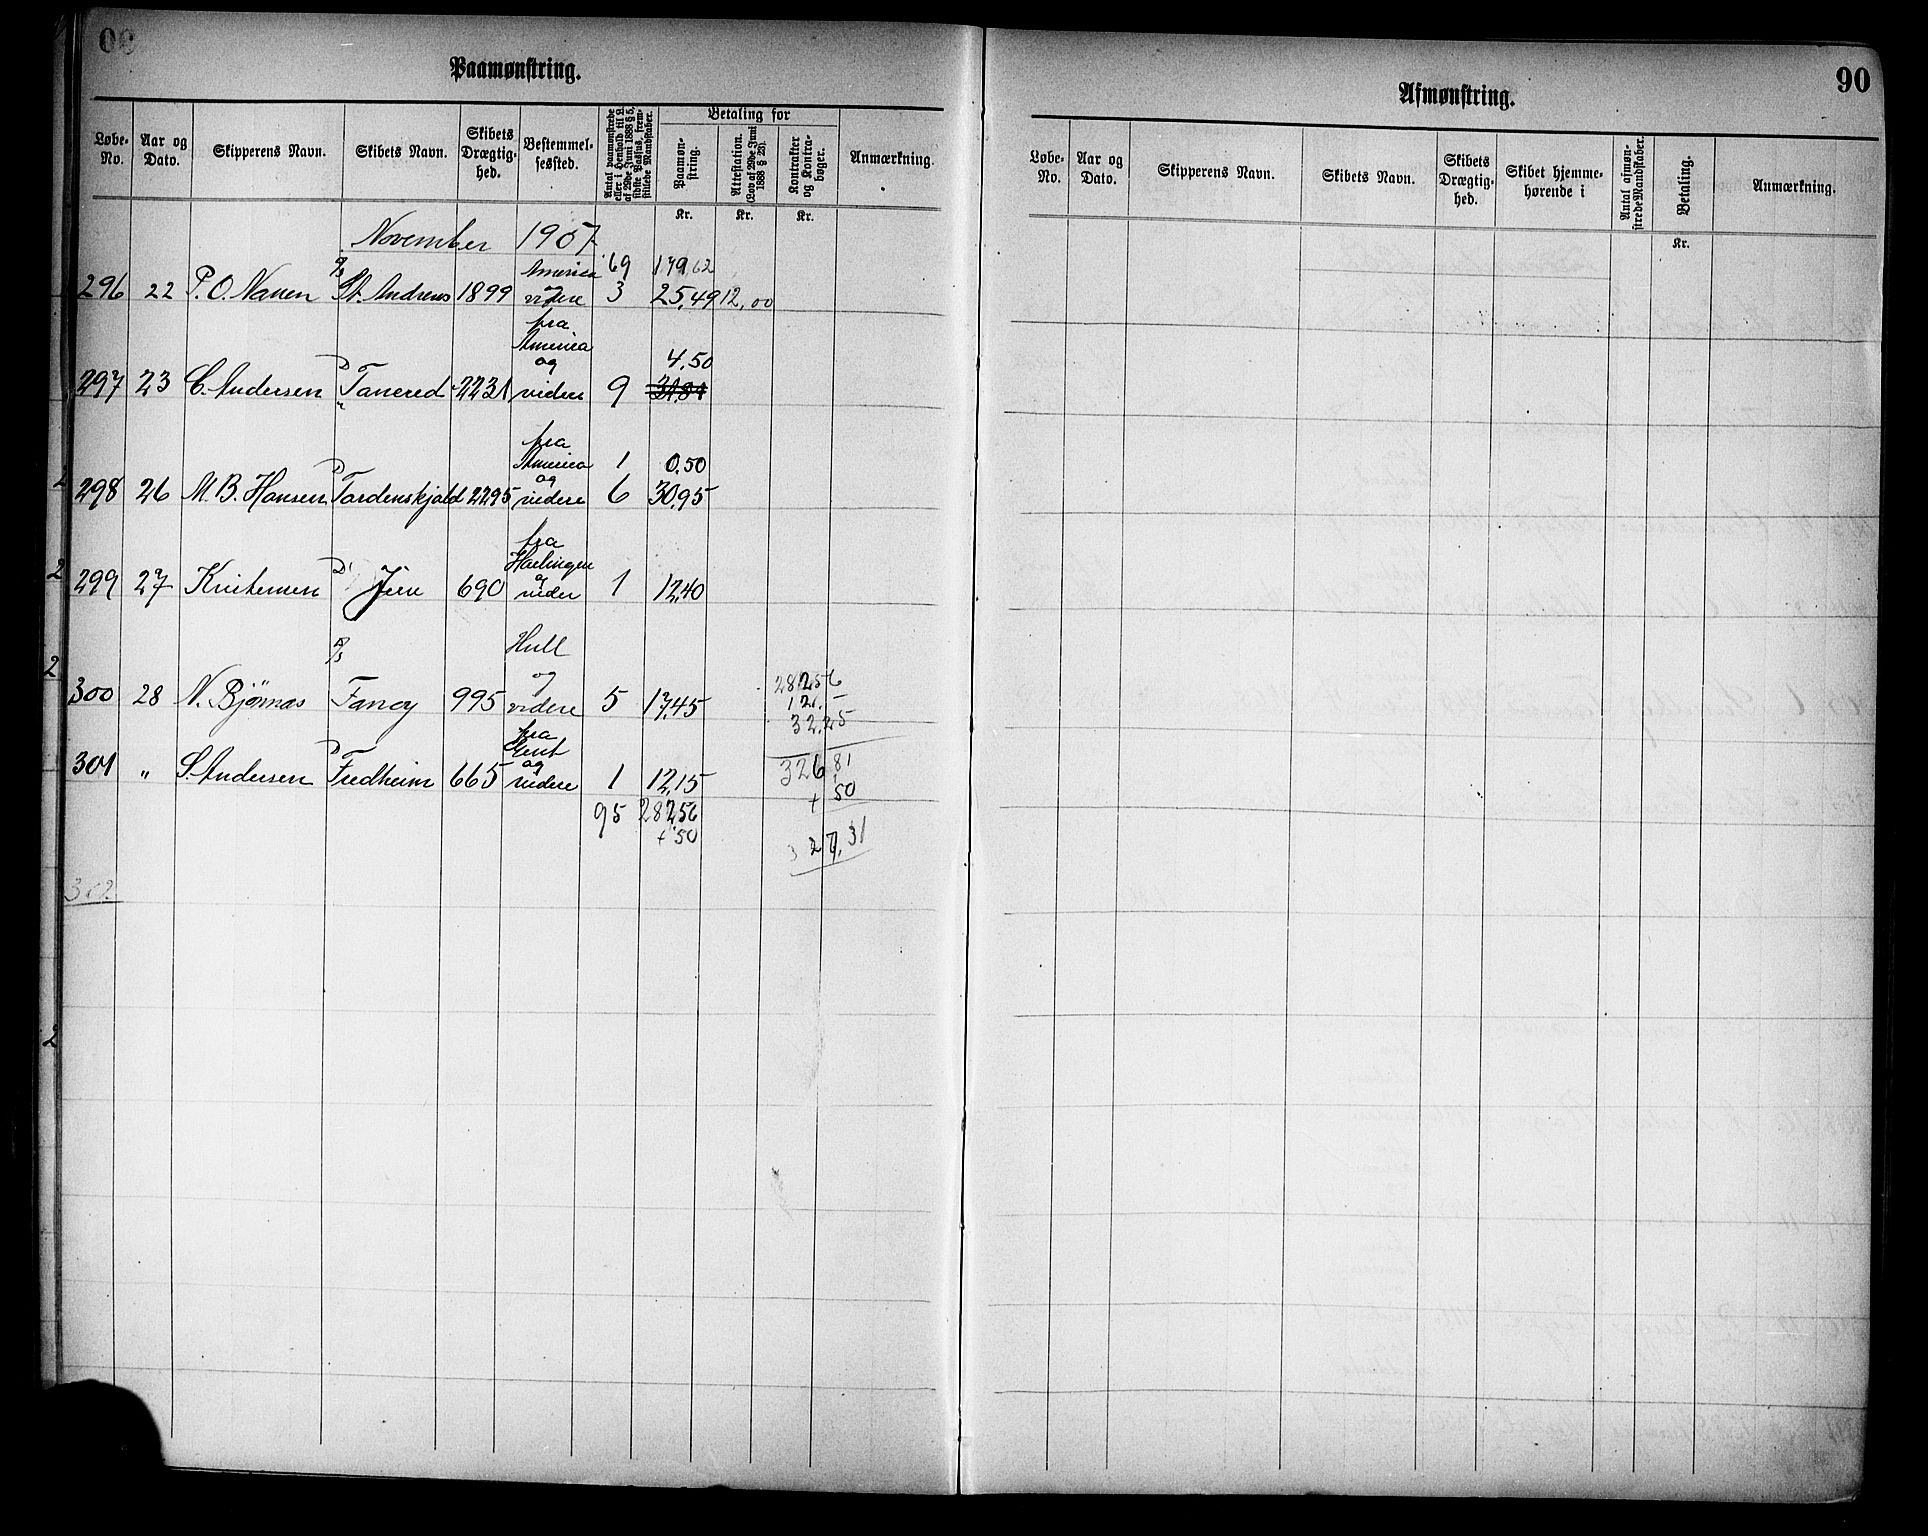 90
Paamønstring.
Løbe-No. Aar og Dato. Skipperens Navn. Skibets Navn. Skibets Drægtig-hed. Bestemmel-sessted. Antal paamønstrede eller i Henhold til L. af 29de Juni 1888 § 5, sidste Passus, frem-stillede Mandskaber. Betaling for Paamøn-string. Attestation. (Lov af 29de Juni 1888 § 23). Kontrakter og Kontra-bøger. Anmærkning.
Kr. Kr. Kr.
November 1907
America 69 179,62
296 22 P.O. Nanen St. Andrews 1899 og videre 3 25,49 12,00
fra
America
og 4,50
297 23 C. Andersen D Tancred 2231 videre 9 31,84
fra
America 1 0,50
og
298 26 M.B. Hansen D Tordenskjold 2295 videre 6 30,95
fra
Harlingen
og
299 27 Kristensen D 690 videre 1 12,40
Hull
og
300 28 N. Bjørnas Fancy 995 videre 5 17,45
282,56
12,-
32,25
fra
Gent
og
301 " S. Andersen D Fredheim 665 videre 1 12,15
326,81
+ 50
95 282,56
+ 50
327,31
302
Afmønstring.
90
Løbe-No. Aar og Dato. Skipperens Navn. Skibets Navn. Skibets Drægtig-hed. Skibet hjemme-hørende i Antal afmøn-strede Mandskaber. Betaling. Anmærkning.
Kr.